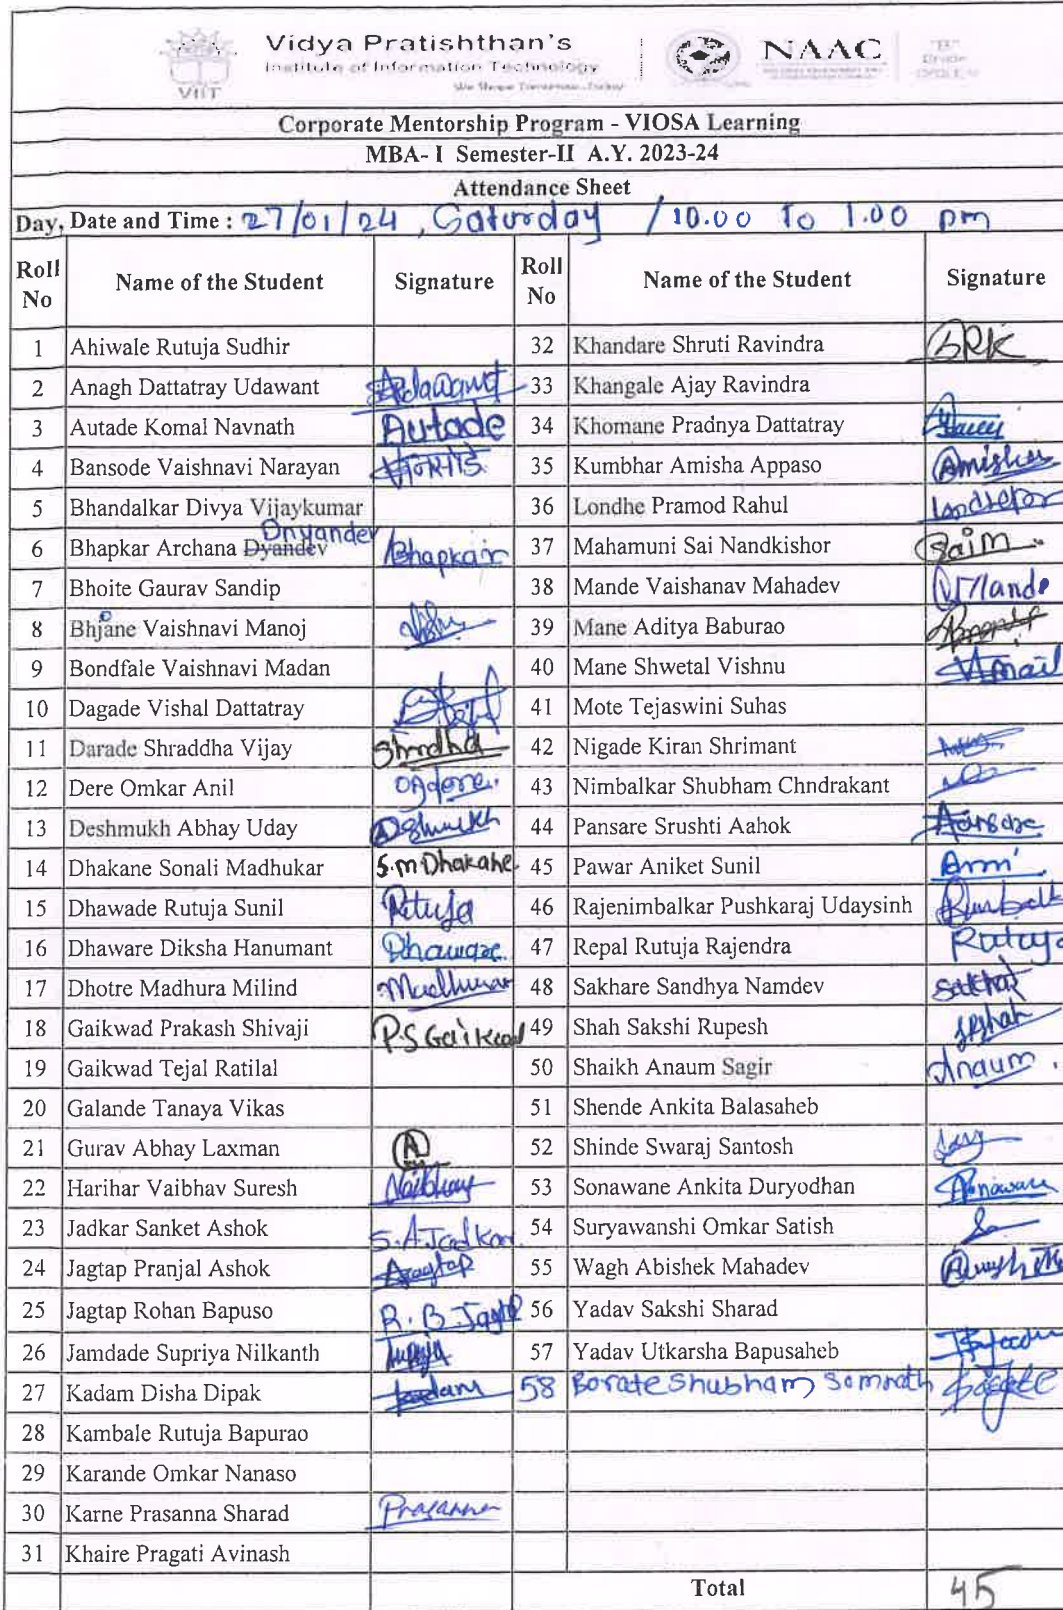 Vidya Pratishthan's
Institute of Information Technology
VIIT
NAAC
"B"
Grade
Corporate Mentorship Program - VIOSA Learning
MBA- I Semester-II A.Y. 2023-24
Attendance Sheet
Day, Date and Time : 27/01/24 , Saturday / 10.00 To 1.00 pm
Roll No Name of the Student Signature Roll No Name of the Student Signature
1 Ahiwale Rutuja Sudhir 32 Khandare Shruti Ravindra SRK
2 Anagh Dattatray Udawant 33 Khangale Ajay Ravindra
3 Autade Komal Navnath Autade 34 Khomane Pradnya Dattatray
4 Bansode Vaishnavi Narayan 35 Kumbhar Amisha Appaso
5 Bhandalkar Divya Vijaykumar 36 Londhe Pramod Rahul
6 Bhapkar Archana Dyandev Dnyandev Bhapkar 37 Mahamuni Sai Nandkishor Saim
7 Bhoite Gaurav Sandip 38 Mande Vaishanav Mahadev
8 Bhjane Vaishnavi Manoj 39 Mane Aditya Baburao
9 Bondfale Vaishnavi Madan 40 Mane Shwetal Vishnu
10 Dagade Vishal Dattatray 41 Mote Tejaswini Suhas
11 Darade Shraddha Vijay 42 Nigade Kiran Shrimant
12 Dere Omkar Anil 43 Nimbalkar Shubham Chndrakant
13 Deshmukh Abhay Uday 44 Pansare Srushti Aahok
14 Dhakane Sonali Madhukar S.m Dhakane 45 Pawar Aniket Sunil
15 Dhawade Rutuja Sunil Rutuja 46 Rajenimbalkar Pushkaraj Udaysinh
16 Dhaware Diksha Hanumant Dhaware 47 Repal Rutuja Rajendra Rutuja
17 Dhotre Madhura Milind 48 Sakhare Sandhya Namdev
18 Gaikwad Prakash Shivaji P.S Gaikwad 49 Shah Sakshi Rupesh
19 Gaikwad Tejal Ratilal 50 Shaikh Anaum Sagir Anaum .
20 Galande Tanaya Vikas 51 Shende Ankita Balasaheb
21 Gurav Abhay Laxman 52 Shinde Swaraj Santosh
22 Harihar Vaibhav Suresh Vaibhav 53 Sonawane Ankita Duryodhan
23 Jadkar Sanket Ashok S.A Jadkar 54 Suryawanshi Omkar Satish
24 Jagtap Pranjal Ashok 55 Wagh Abishek Mahadev
25 Jagtap Rohan Bapuso R. B Jagtap 56 Yadav Sakshi Sharad
26 Jamdade Supriya Nilkanth 57 Yadav Utkarsha Bapusaheb
27 Kadam Disha Dipak Kadam 58 Borate Shubham Somnath
28 Kambale Rutuja Bapurao
29 Karande Omkar Nanaso
30 Karne Prasanna Sharad Prasanna
31 Khaire Pragati Avinash
Total 45